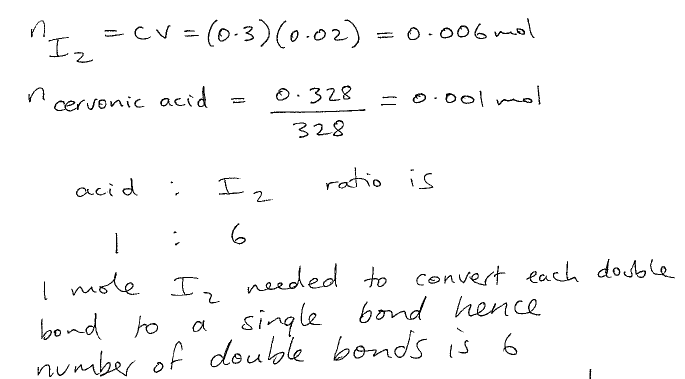 n I₂ = CV = (0.3)(0.02) = 0.006 mol
n cervonic acid = 0.328 / 328 = 0.001 mol
acid : I₂ ratio is
1 : 6
1 mole I₂ needed to convert each double
bond to a single bond hence
number of double bonds is 6